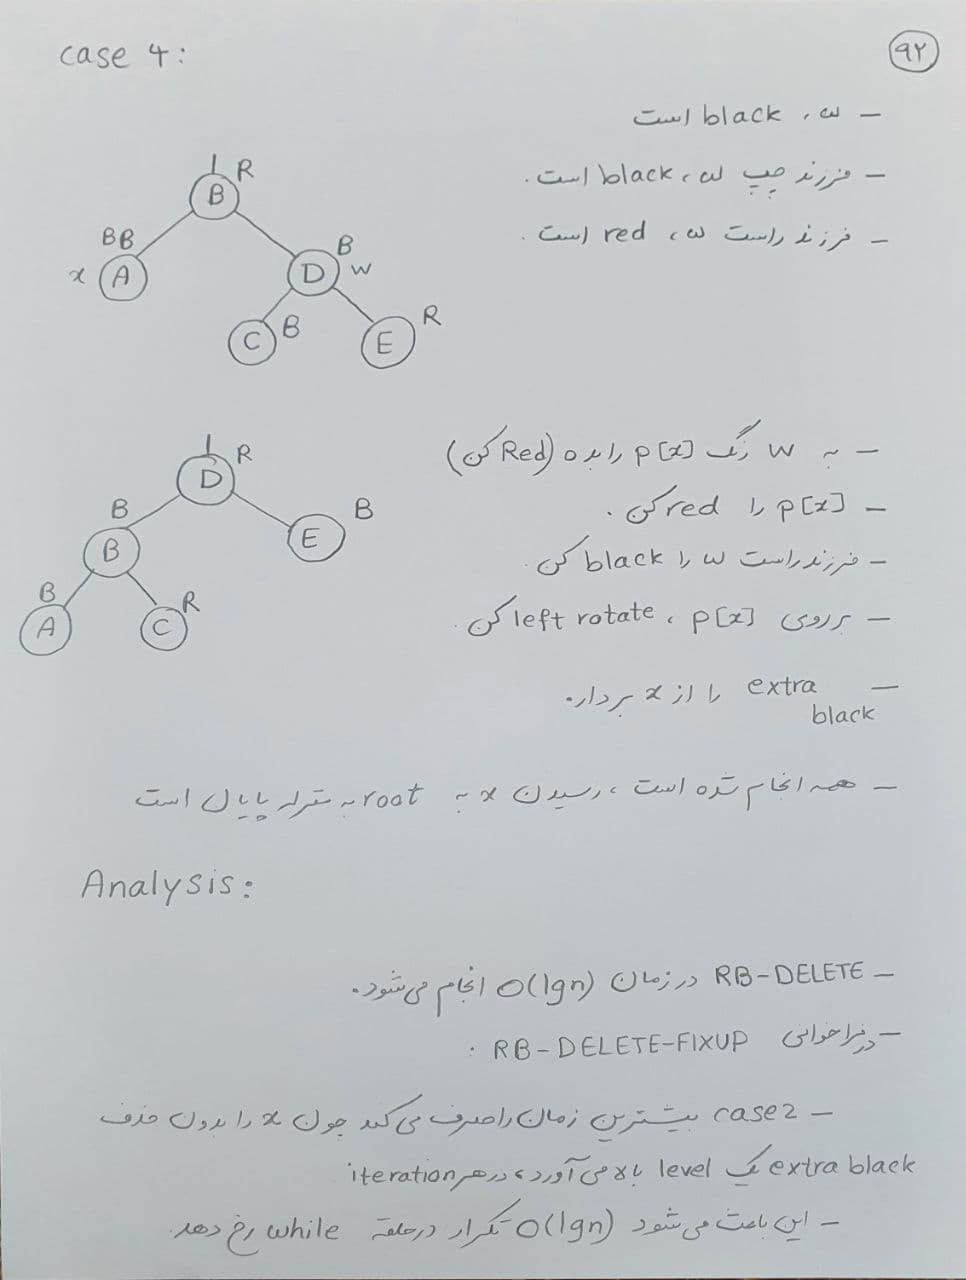 case 4:
۹۲
– w، black است
– فرزند چپ w، black است.
– فرزند راست w، red است.
R
B
BB
x A
B
D w
C B
E R
– به w رنگ p[x] را بده (Red کن)
– p[x] را red کن.
– فرزند راست w را black کن.
– بر روی p[x]، left rotate کن.
– extra black را از x بردار.
R
D
B
B
B
E
B
A
R
C
– همه انجام شده است، رسیدن x به root به منزله پایان است
Analysis:
– RB-DELETE در زمان O(lgn) انجام می‌شود.
– در فراخوانی RB-DELETE-FIXUP :
– case2 بیشترین زمان را صرف می‌کند چون x را بدون حذف
extra black یک level بالا می‌آورد، در هر iteration
– این باعث می‌شود O(lgn) تکرار در حلقه while رخ دهد.